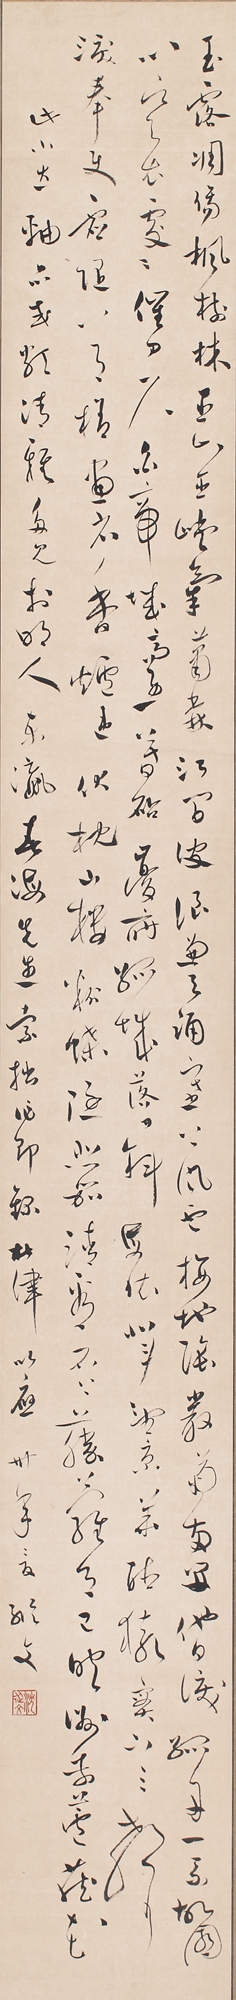 玉露凋傷楓樹林巫山巫峽氣蕭森江間波浪兼天涌塞上風雲接地陰叢菊兩開他日淚孤舟一系故園
心寒衣處處催刀尺白帝城高急暮砧夔府孤城落日斜每依北斗望京華聽猿實下三聲
淚奉使虛隨八月槎畫省香爐違伏枕山樓粉堞隱悲笳請看石上藤蘿月已映洲前蘆荻花
此小直軸亦或類清雅多見於明人東瀛春海先生索拙作即錄杜律以應卅年文